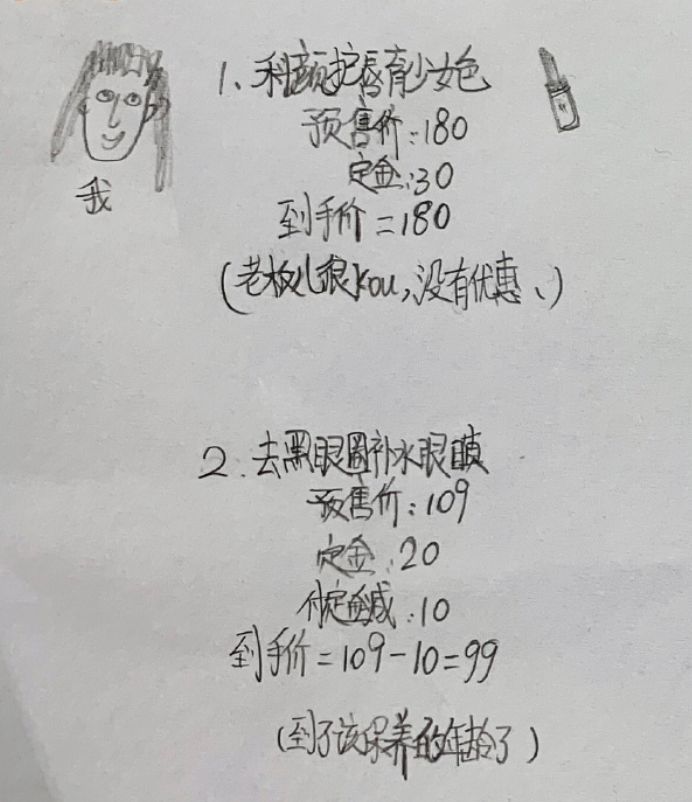 1、利颜护唇膏少女色
预售价：180
定金：30
到手价=180
我
（老板儿狠kou，没有优惠、）
2.去黑眼圈补水眼膜
预售价：109
定金：20
付定立减：10
到手价=109-10=99
（到了该保养的年龄了）